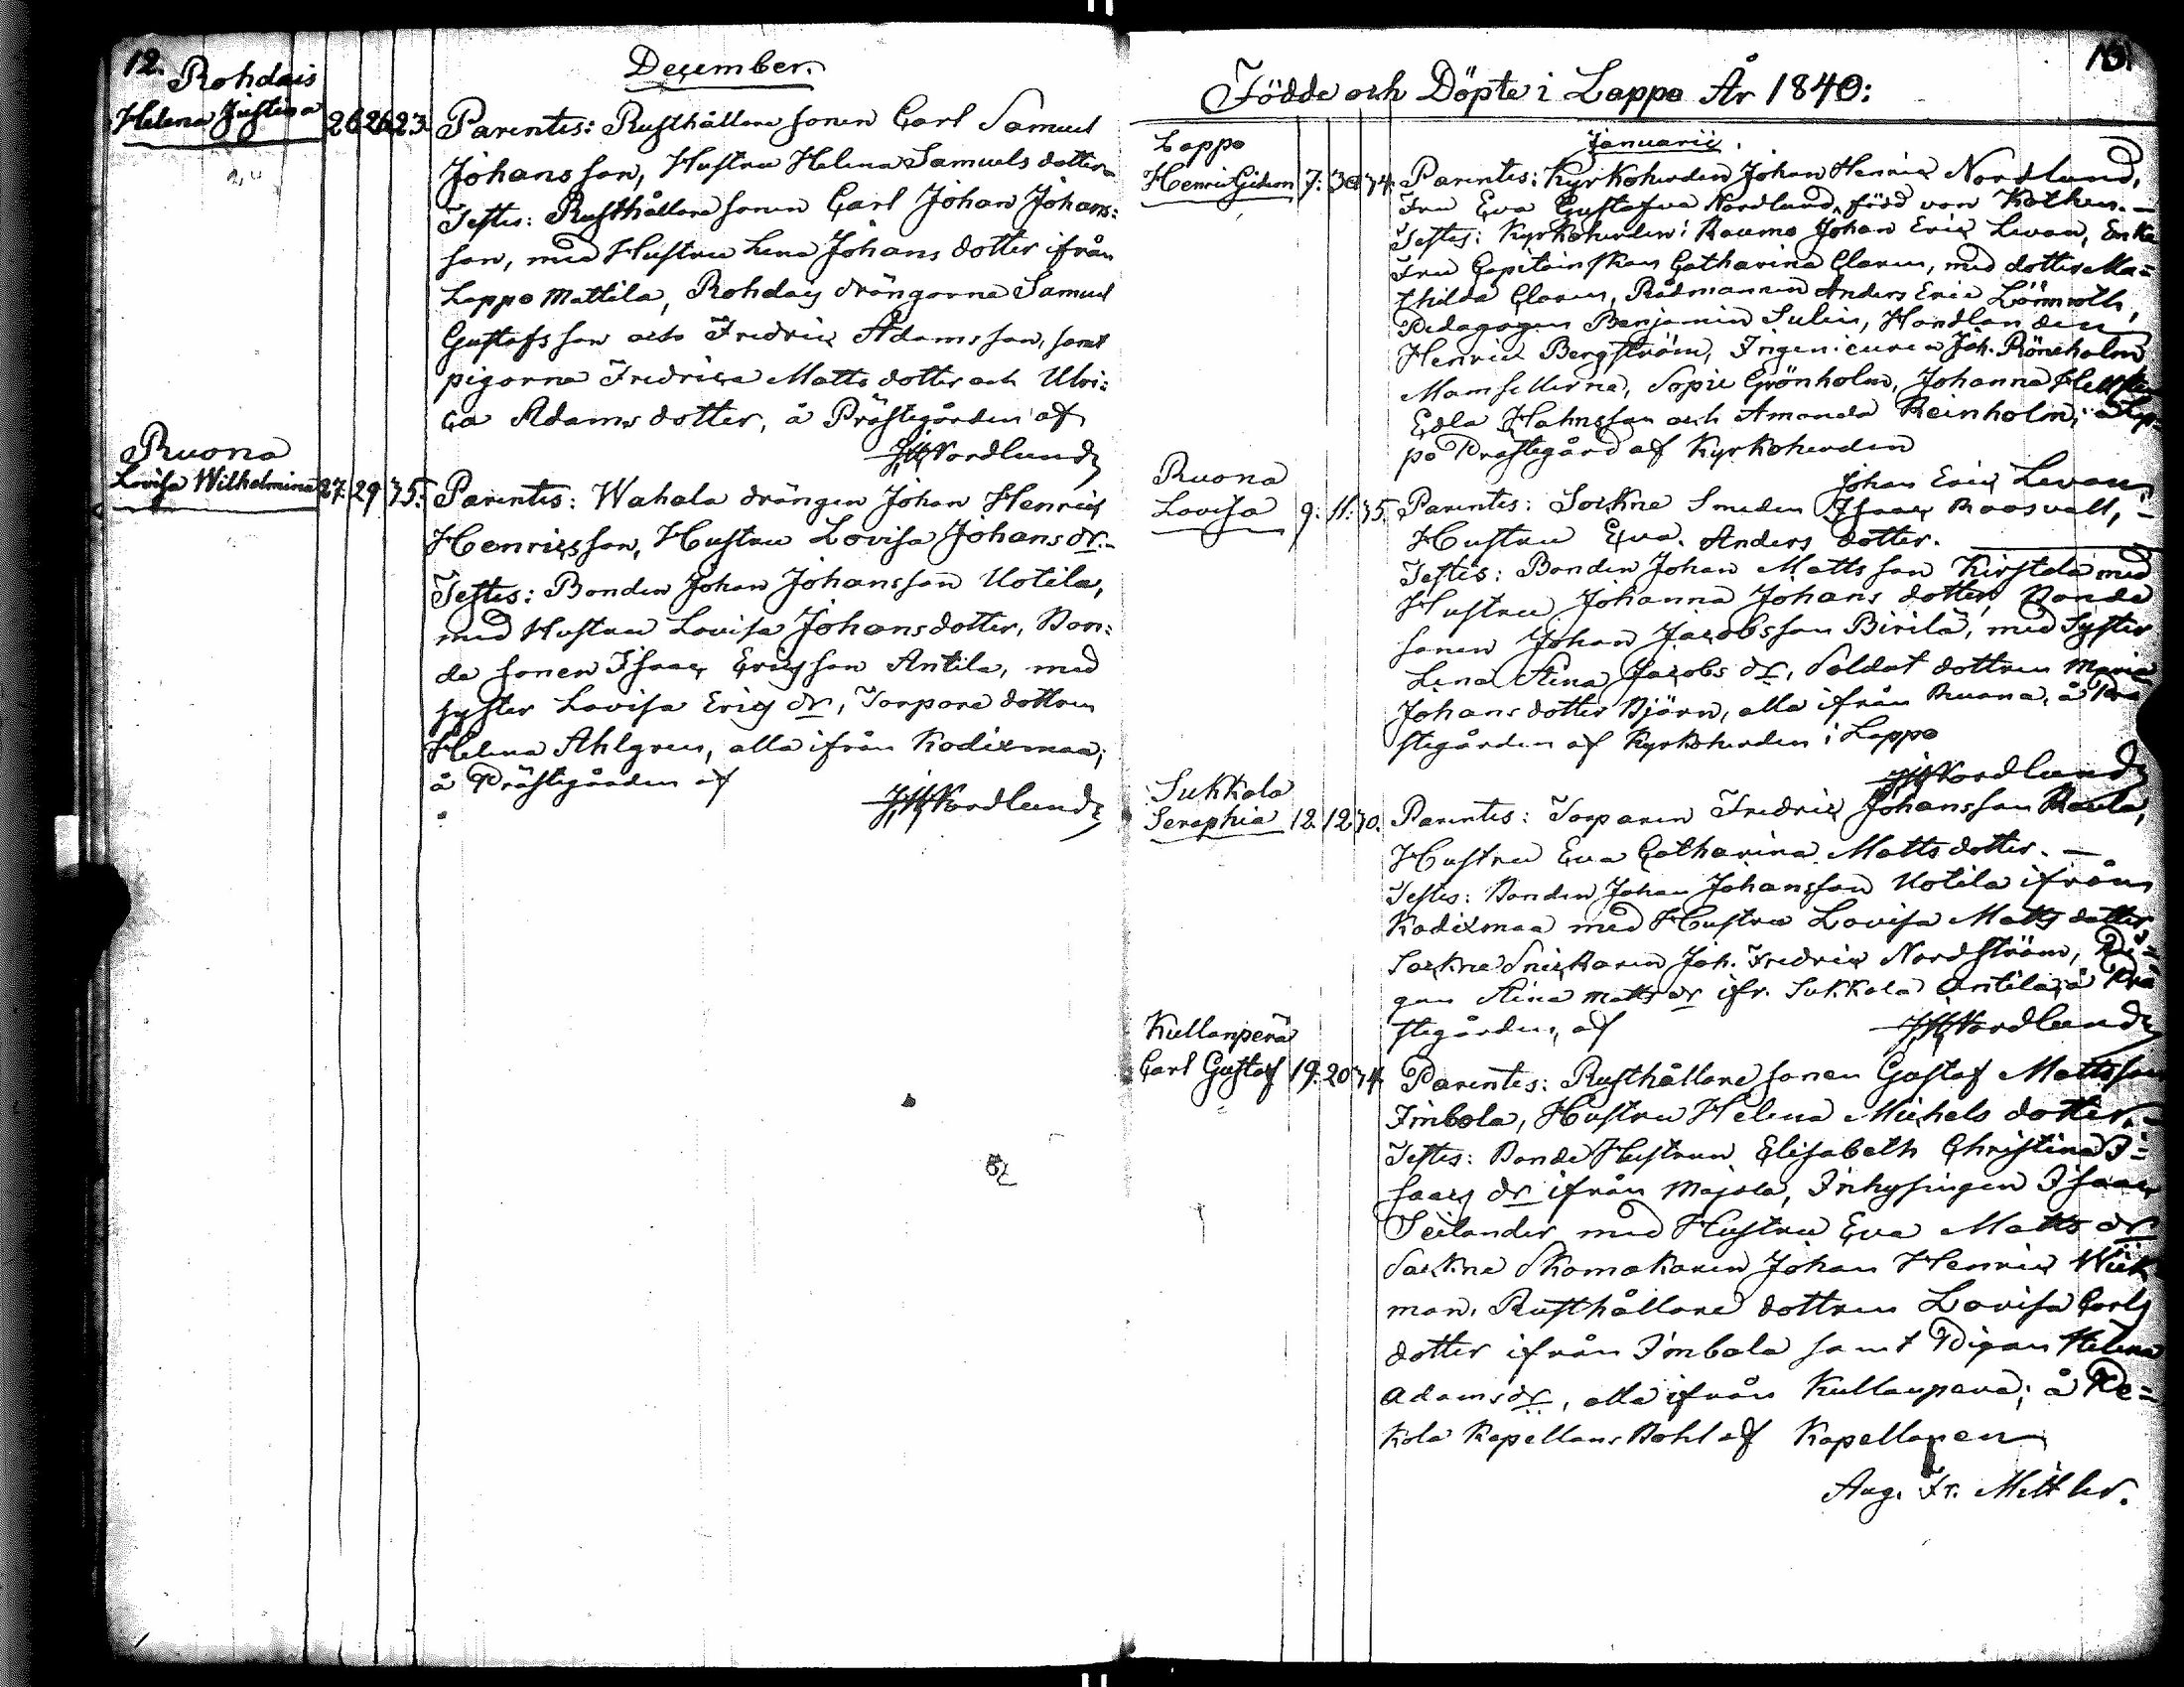 12.
December.
Rohdais
Helena Justina 26 26 23. Parentes: Rusthållare sonen Carl Samuel
Johansson, Hustru Helena Samuels dotter.
Testes: Rusthållare sonen Carl Johan Johans:
son, med Hustru Lena Johans dotter ifrån
Lappo Mattila, Rohdais drängarne Samuel
Gustafsson och Fredric Adamsson, samt
pigorna Fredrica Matts dotter och Ulri:
ca Adams dotter, å Prästegården af
JHNordlund
Ruona
Lovisa Wilhelmina 27. 29 35. Parentes: Wahala drängen Johan Henric
Henricsson, Hustru Lovisa Johans dr.
Testes: Bonden Johan Johansson Uotila,
med Hustru Lovisa Johansdotter, Bon:
de sonen Isaac Ericsson Antila, med
syster Lovisa Erics dr, Torpare dottren
Helena Ahlgren, alla ifrån Kodixmaa;
å Prästegården af
JHNordlund
13
Födde och Döpte i Lappo År 1840:
Januarii.
Lappo
Henric Gideon 7. 30 34. Parentes: Kyrkoherden Johan Henric Nordlund,
Fru Eva Gustafva Nordlund, född von Köthen.
Testes: Kyrkoherden i Raumo Johan Eric Levan, Enke
Fru Capitainskan Catharina Claren, med dotter Ma=
thilda Claren, Rådmannen Anders Eric Lönnroth,
Pedagogen Benjamin Sulin, Handlanden
Henric Bergström, Ingenieuren Joh. Rönnholm
Mamsellerna, Sopie Grönholm, Johanna
Edla Hahnsson och Amanda Reinholm; å Lap:
po Prästegård af Kyrkoherden
Johan Eric Levan.
Ruona
Lovisa 9. 11. 35. Parentes: Sockne Smeden Isaac Roosvall,
Hustru Eva Anders dotter.
Testes: Bonden Johan Mattsson Kirstola med
Hustru Johanna Johans dotter, Bonde
sonen Johan Jacobsson Birilä, med Syster
Lena Stina Jacobs dr, Soldat dottren Maria
Johans dotter Björn, alla ifrån Ruona, å Prä
stegården af Kyrkoherden i Lappo
JHNordlund
Sukkala
Seraphia 12. 12 30. Parentes: Torparen Fredric Johansson
Hustru Eva Catharina Matts dotter.
Testes: Bonden Johan Johansson Uotila ifrån
Kodixmaa med Hustru Lovisa Matts dotter,
Sockne Snickaren Joh. Fredric Nordström, Pi=
gan Stina Matts dr ifr. Sukkala Antila, å Prä
stegården, af
JHNordlund
Kullanperä
Carl Gustaf 19. 20 34. Parentes: Rusthållare sonen Gustaf Mattsson
Imbola, Hustru Helena Michels dotter.
Testes: Bonde Hustrun Elisabeth Christina I=
saacs dr ifrån Majola, Inhysingen Isaac
Seilander med Hustru Eva Matts dr
Sockne Skomakaren Johan Henric Wiik
man, Rusthållare dottren Lovisa Carls
dotter ifrån Imbola samt Pigan Helena
Adams dr, alla ifrån Kullanperä; å Pe=
kola Kapellans Bohl af Kapellanen
Aug. Fr. Mittler.